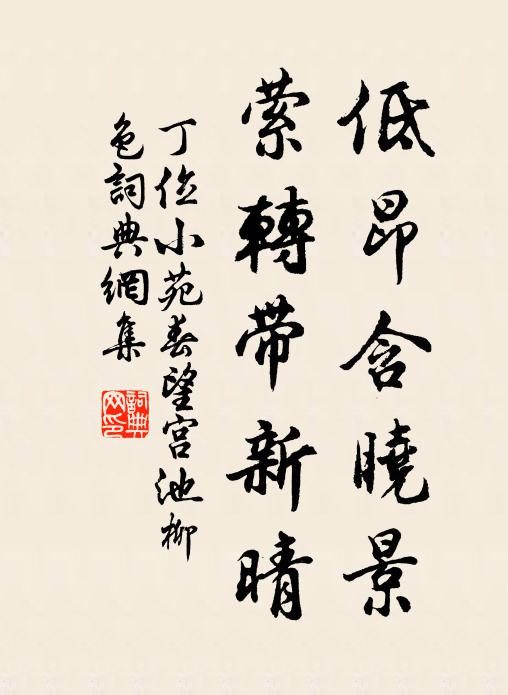 低昂含曉景
縈轉帶新晴
丁位小苑春望宮池柳
色詞典網集
詞典
网印